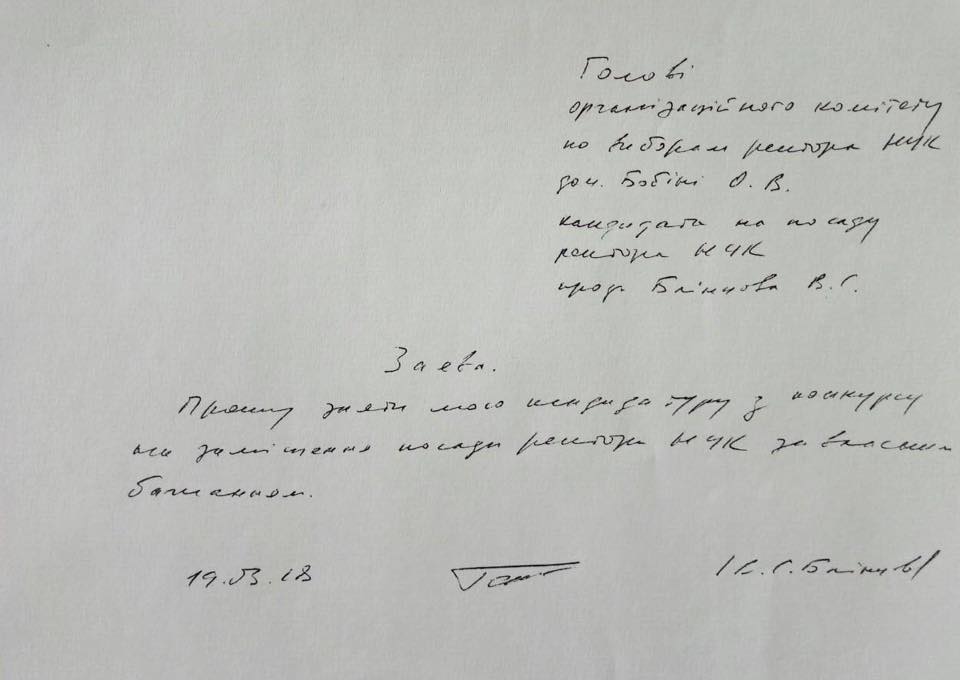 Голові
організаційного комітету
по виборам ректора НУК
доц. Бобіні О. В.
кандидата на посаду
ректора НУК
проф. Блінцова В. С.
Заява.
Прошу зняти мою кандидатуру з конкурсу
на заміщення посади ректора НУК за власним
бажанням.
19.03.18 /В.С. Блінцов/